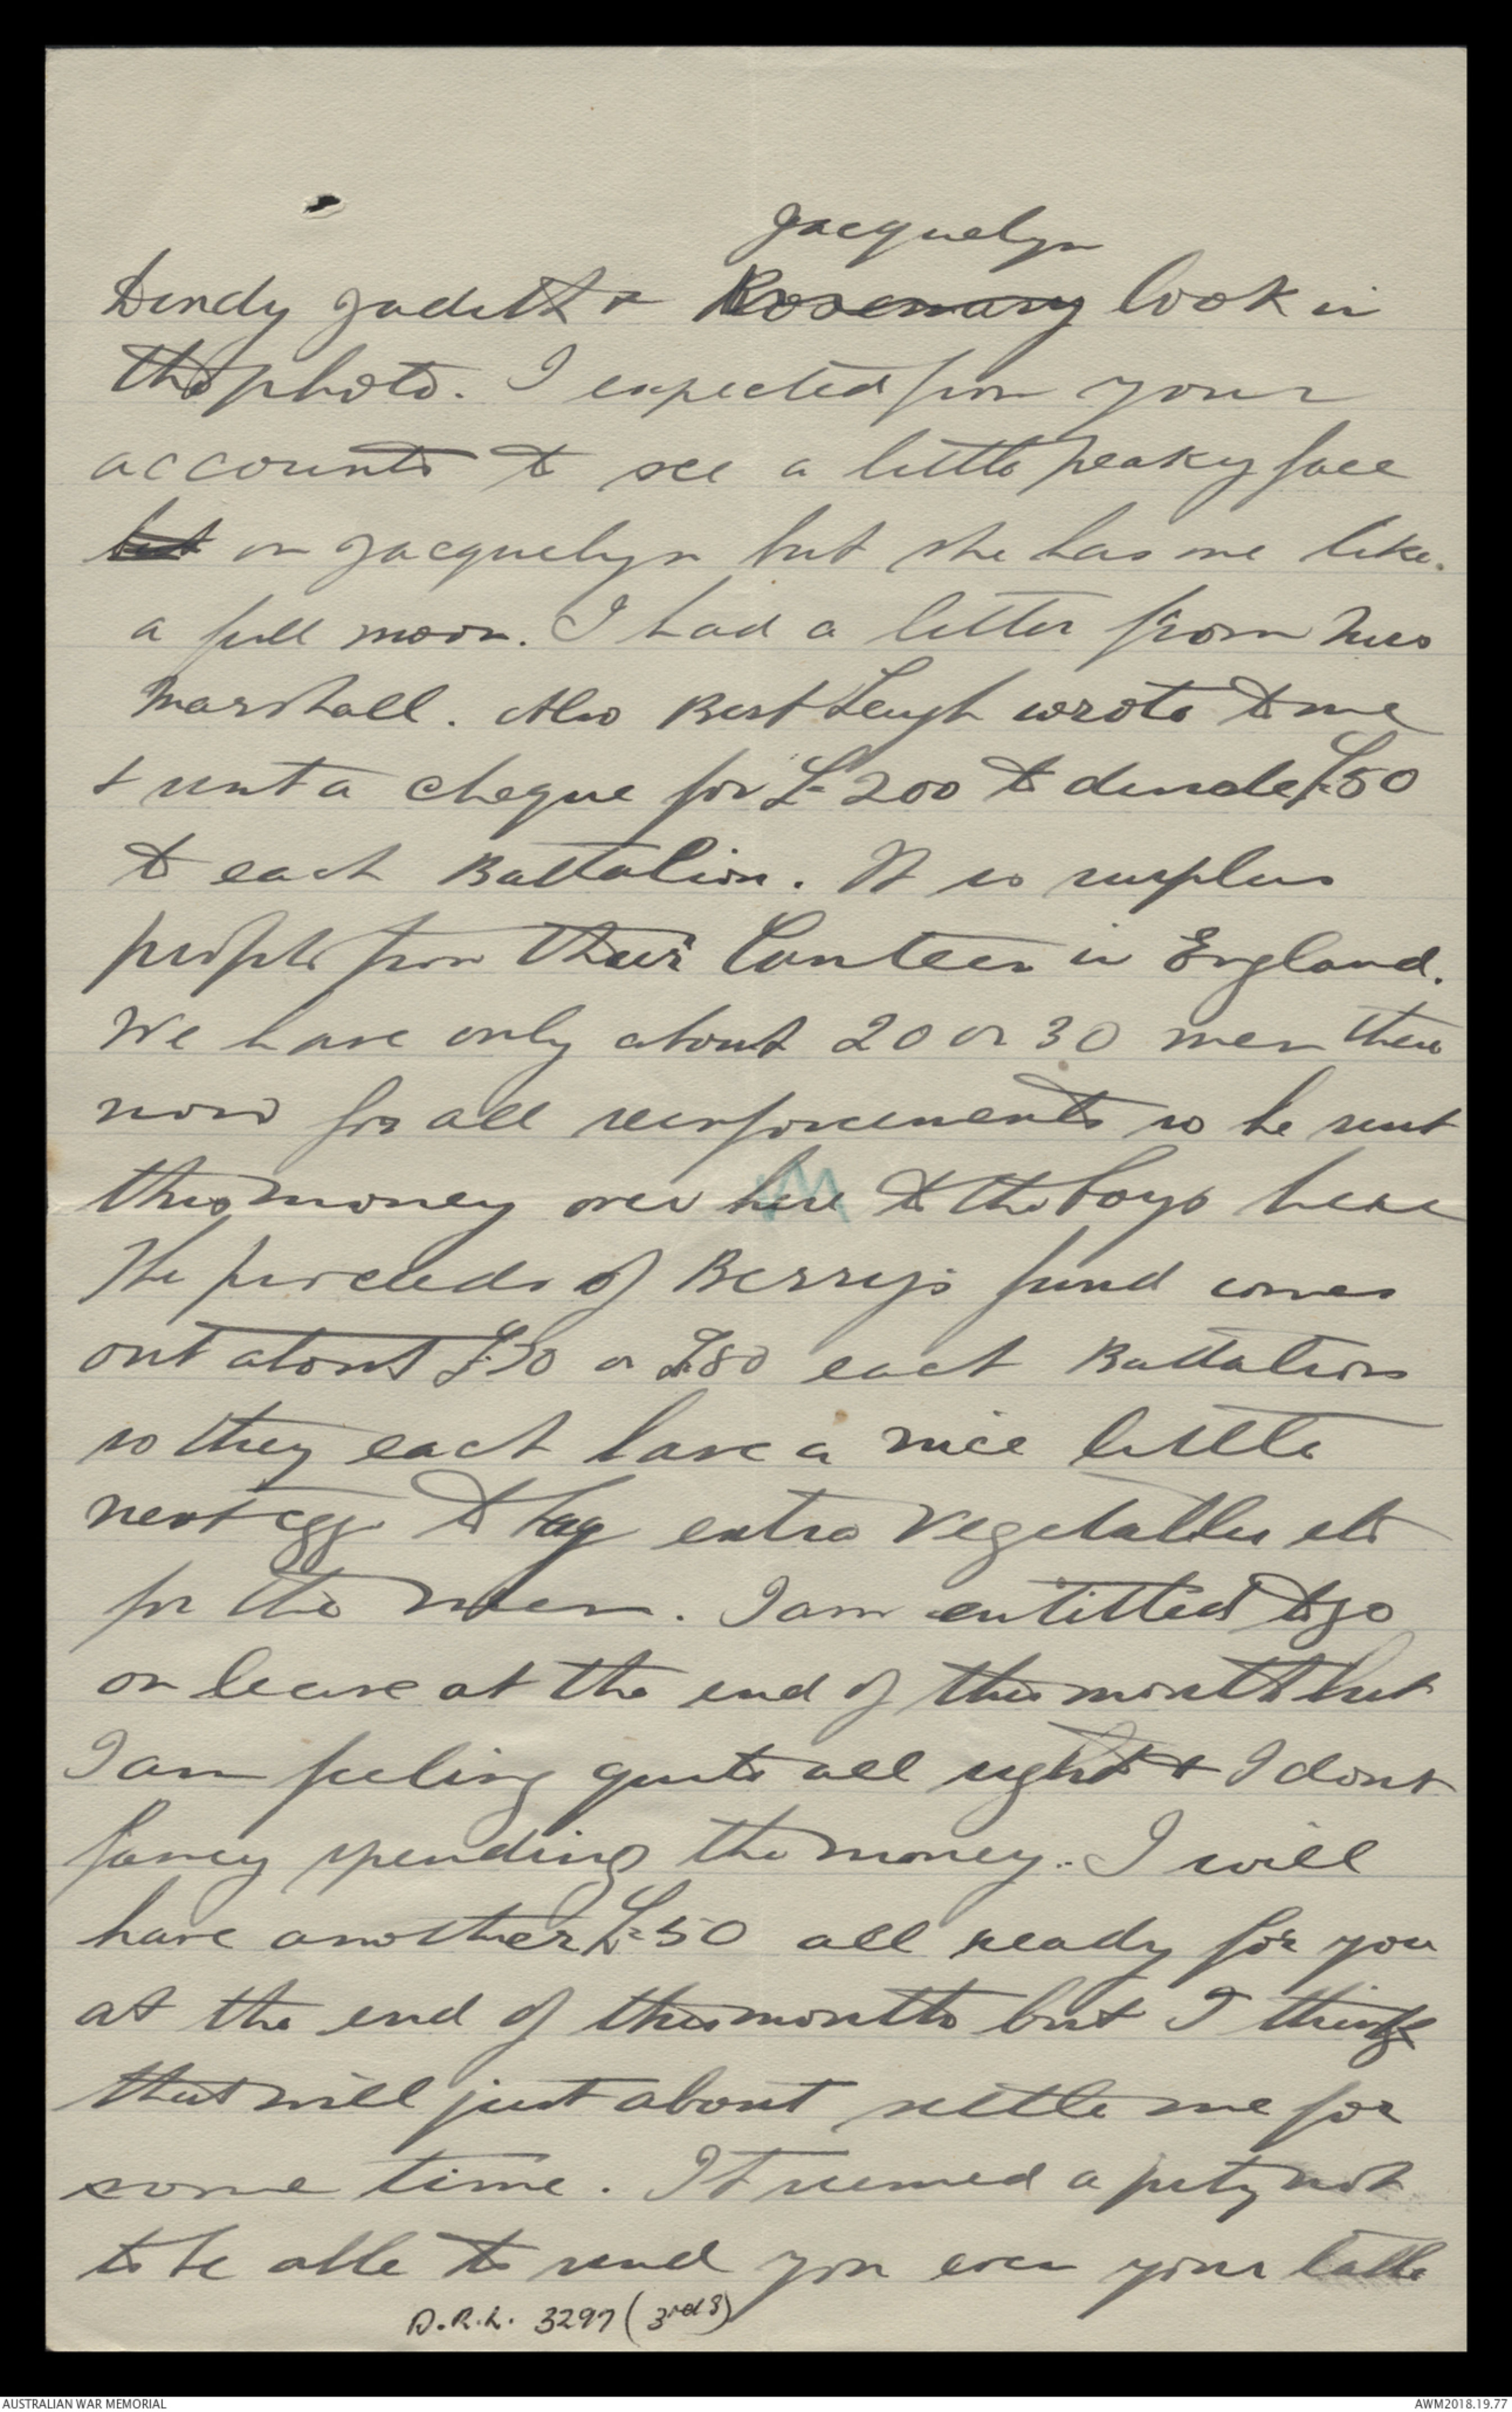 Jacquelyn
Dindy Judith & Rosemary look in
the photo. I expected from your
accounts to see a little peaky face
but on Jacquelyn but she has one like
a full moon. I had a letter from Mrs
Marshall. Also Bert Leugh wrote to me
& sent a cheque for £200 to divide, £50
to each Battalion. It is surplus
profits from their Canteen in England.
We have only about 20 or 30 men there
now for all reinforcements so he sent
this money over here to the boys here
The proceeds of Berry's fund comes
out about £70 or £80 each Battalion
so they each have a nice little
nest egg to buy extra vegetables etc
for the men. I am entitled to go
on leave at the end of this month but
I am feeling quite all right & I dont
fancy spending the money. I will
have another £50 all ready for you
at the end of this month but I think
that will just about settle me for
some time. It seemed a pity not
to be able to send you even your little
D.R.L. 3297 (3rd S)
AUSTRALIAN WAR MEMORIAL
AWM2018.19.77